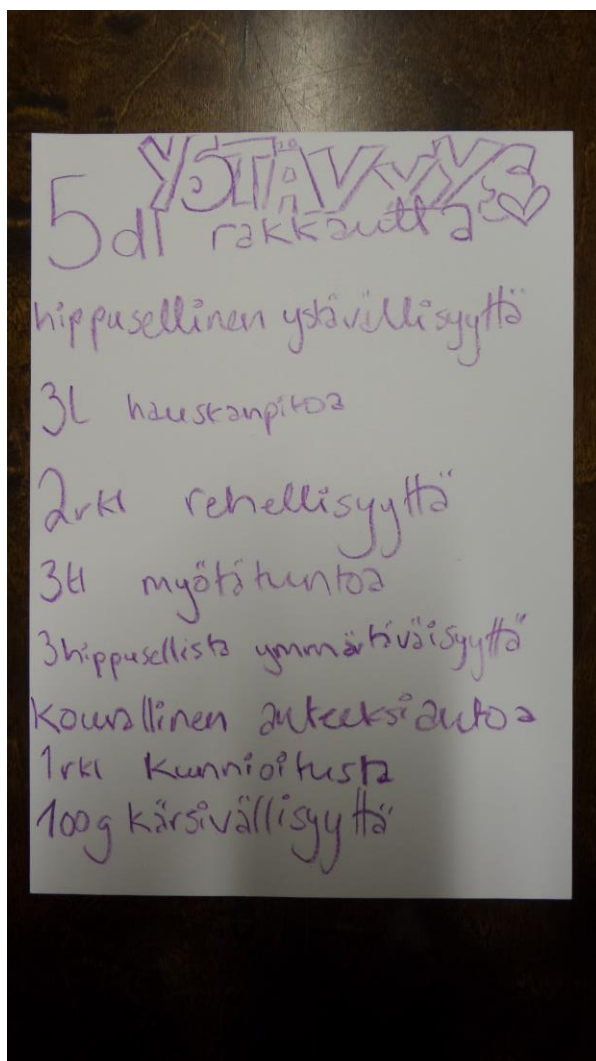 YSTÄVYYS
5 dl rakkautta
hippusellinen ystävällisyyttä
3l hauskanpitoa
2rkl rehellisyyttä
3tl myötätuntoa
3hippusellista ymmärtäväisyyttä
kourallinen anteeksiantoa
1rkl kunnioitusta
100g kärsivällisyyttä